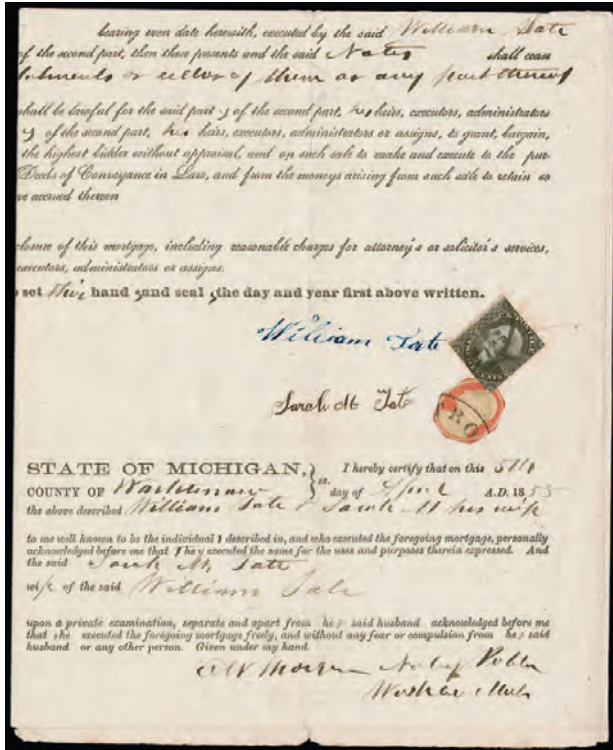 bearing even date herewith, executed by the said William Tate
of the second part, then these presents and the said Notes shall cease
or either of them or any part thereof
shall be lawful for the said party of the second part, his heirs, executors, administrators
y of the second part, his heirs, executors, administrators or assigns, to grant, bargain,
the highest bidder without appraisal, and on such sale to make and execute to the pur-
Deeds of Conveyance in Law, and from the moneys arising from such sale to retain
ve accrued thereon
closure of this mortgage, including reasonable charges for attorney's or solicitor's services,
executors, administrators or assigns.
set their hands and seals the day and year first above written.
William Tate
Sarah M Tate
CRO
STATE OF MICHIGAN,
COUNTY OF Washtenaw
ss.
I hereby certify that on this 5th
day of April A.D. 1855
the above described William Tate & Sarah M his wife
to me well known to be the individuals described in, and who executed the foregoing mortgage, personally
acknowledged before me that they executed the same for the uses and purposes therein expressed. And
the said Sarah M. Tate
wife of the said William Tate
upon a private examination, separate and apart from her said husband acknowledged before me
that she executed the foregoing mortgage freely, and without any fear or compulsion from her said
husband or any other person. Given under my hand.
Morgan Notary Public